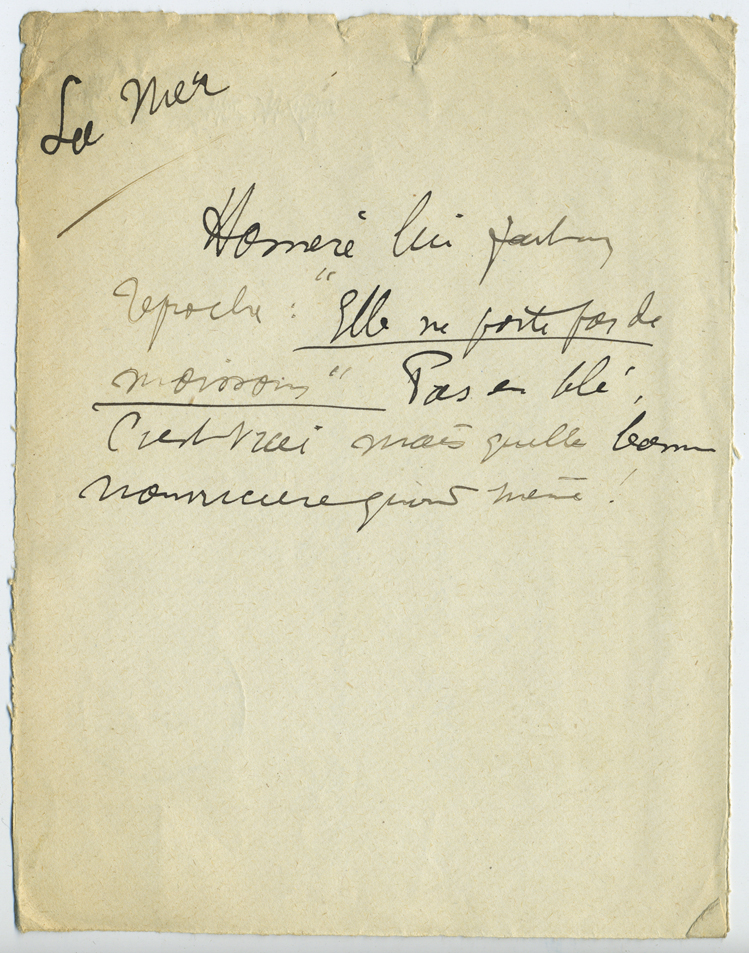 La Mer
Homère lui fait un
reproche : "Elle ne porte pas de
moissons" Pas en blé,
C'est vrai mais quelle bonne
nourricière quand même !